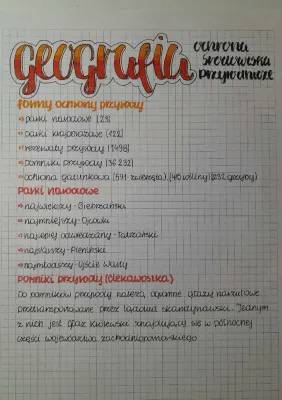 geografia
ochrona
środowiska
przyrodnicze
formy ochrony przyrody
→parki narodowe (23)
→parki krajobrazowe (122)
→rezerwaty przyrody (1498)
→pomniki przyrody (36 232)
→ochrona gatunkowa (591 zwierzęta), (415 rośliny) (232 grzyby)
Parki Narodowe
→największy- Biebrzański
→najmniejszy- Ojcowski
→najwięcej odwiedzany- Tatrzański
→najstarszy- Pieniński
→najmłodszy- Ujście Warty
Pomniki przyrody (ciekawostka)
Do pomników przyrody należą, ogromne głazy narzutowe
przetransportowane przez lądolód skandynawski. Jednym
z nich jest głaz królewski znajdujący się w północnej
części województwa zachodniopomorskiego